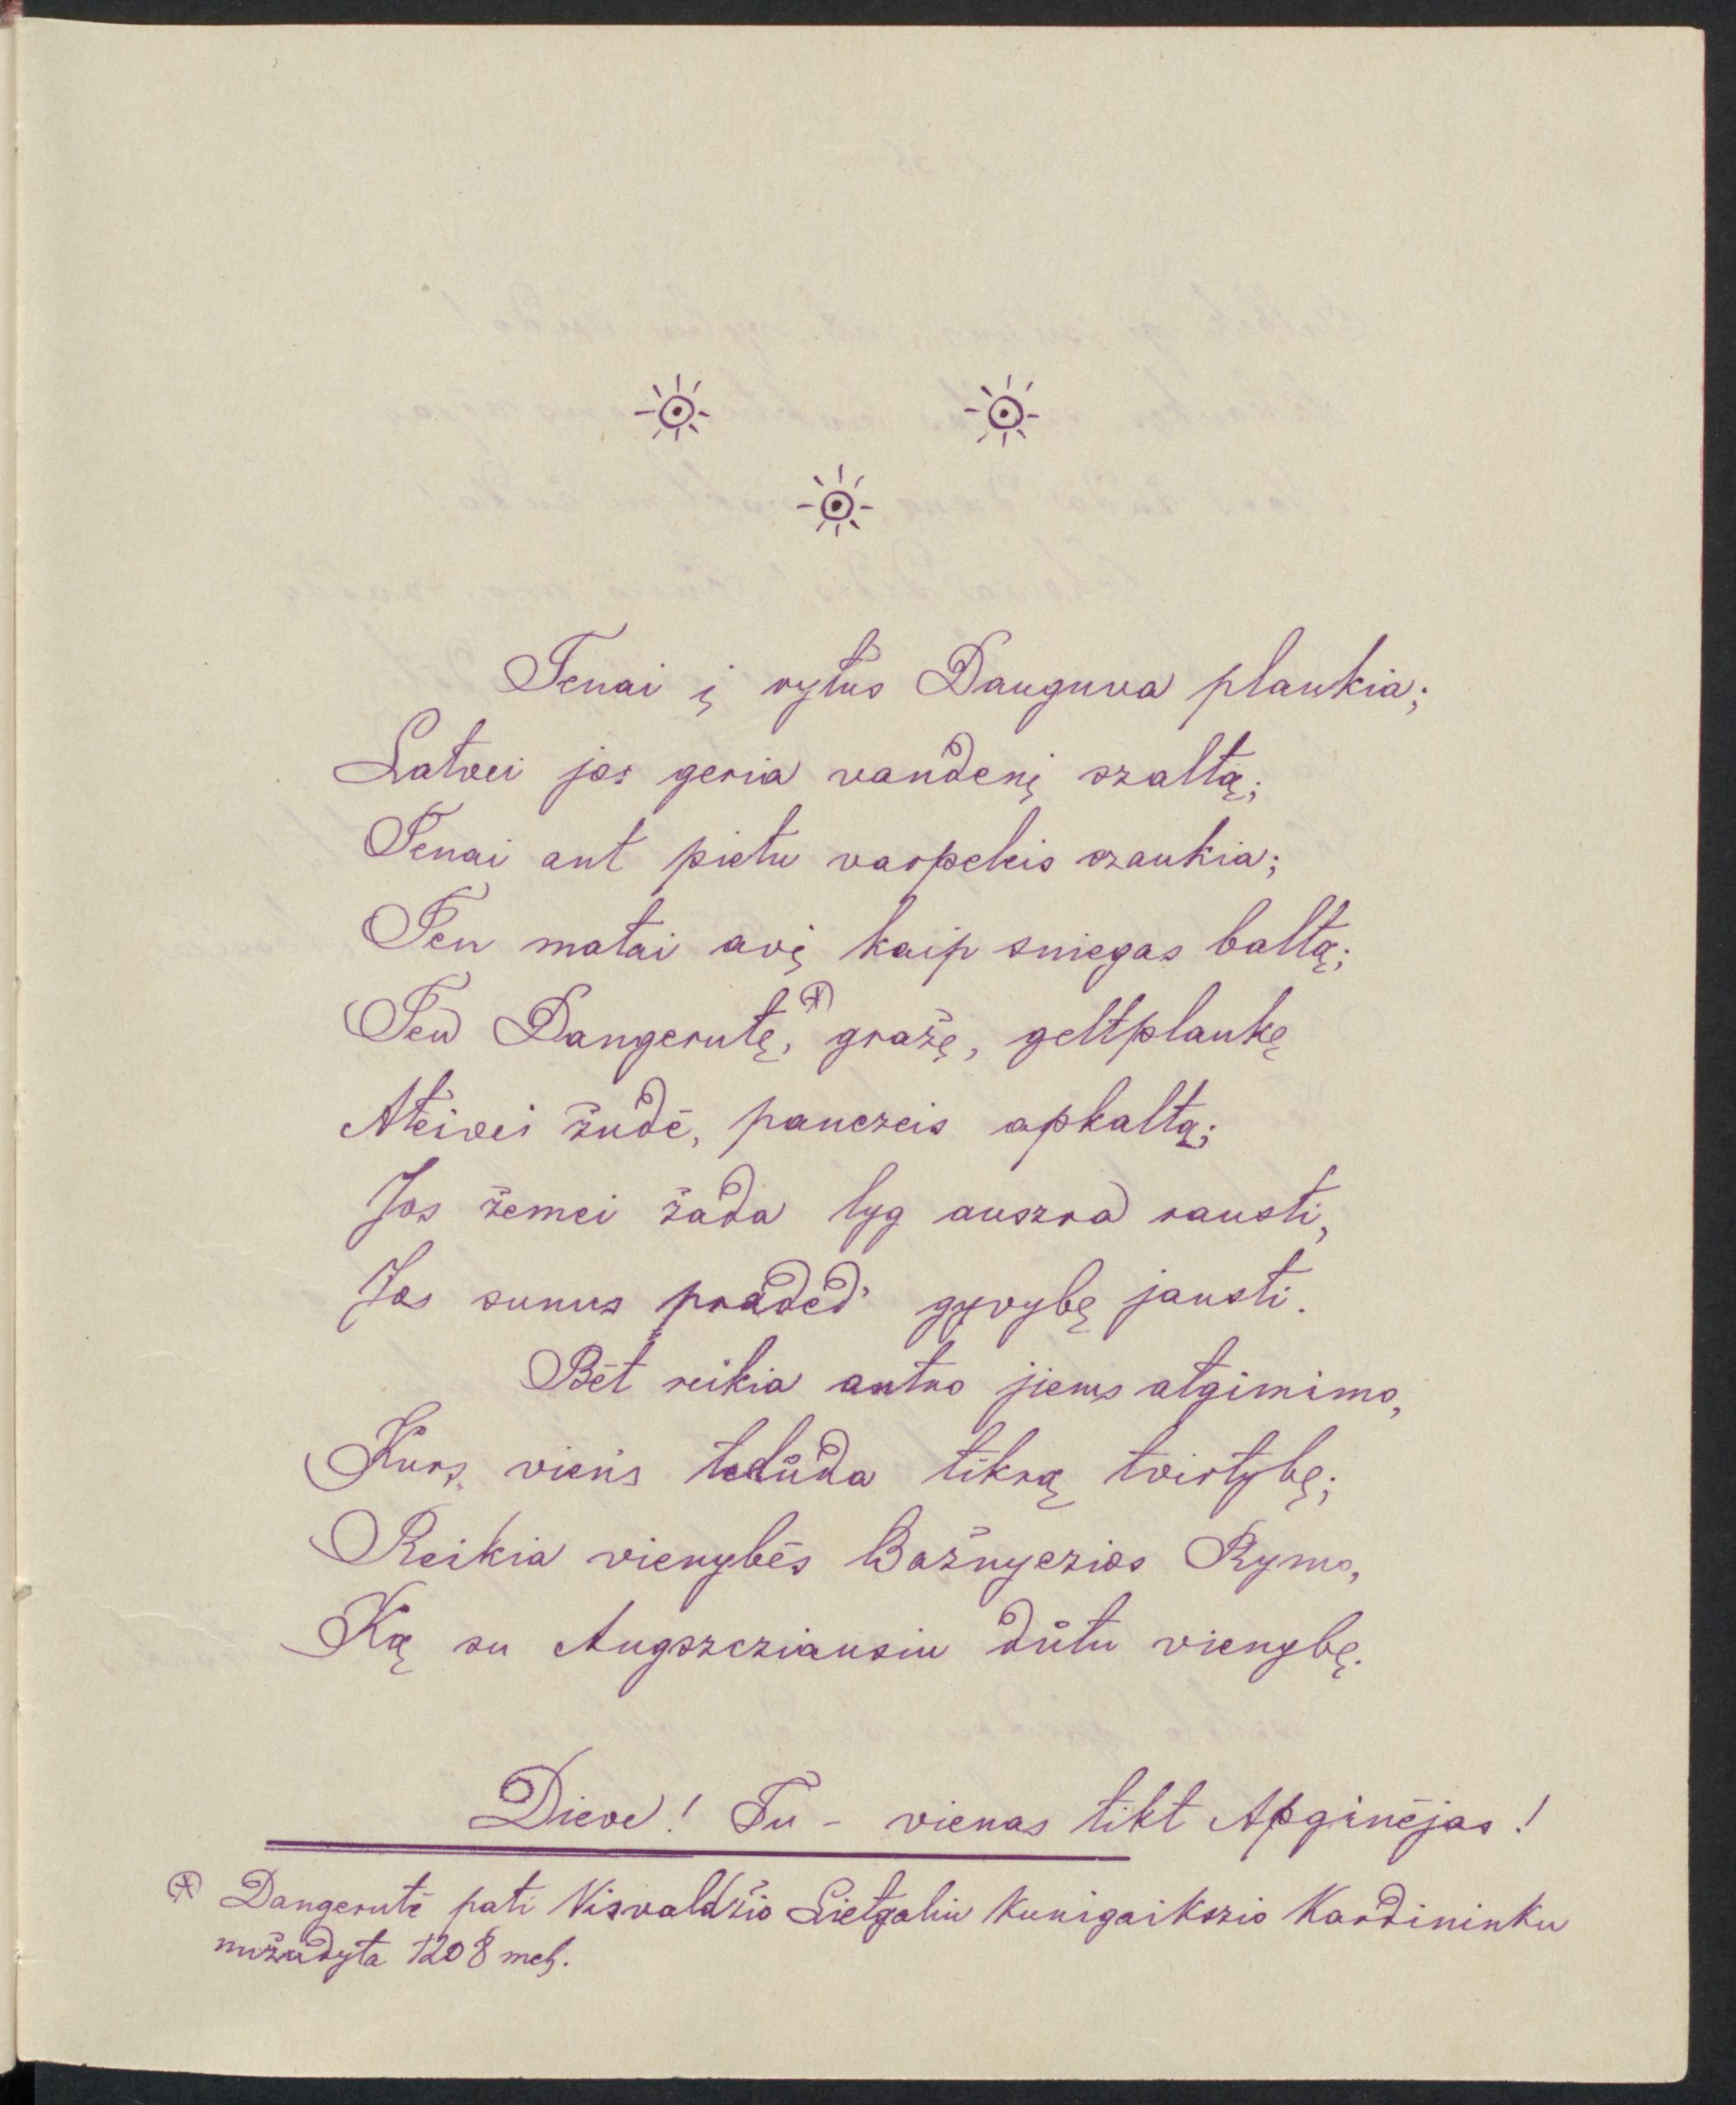 Tenai į rytus Dauguva plaukia;
Latvei jos geria vandenį szaltą;
Tenai ant pietu varpeleis szaukia;
Ten matai avį kaip sniegas baltą;
Ten Dangerutę, *) gražę, geltplaukę
Ateivei žudė, panczeis apkaltą;
Jos žemei žada lyg auszra rausti,
Jos sunus praded' gyvybę jausti.
Bet reikia antro jiems atgimimo,
Kurs viens tedůda tikrą tvirtybę;
Reikia vienybės Bažnyczios Rymo,
Ką su Augszcziausiu důtu vienybę.
Dieve! Tu - vienas tikt Apginėjas!
*) Dangerutė pati Visvaldžio Lietgaliu Kunigaikszio Kardininku
nužudyta 1208 met.